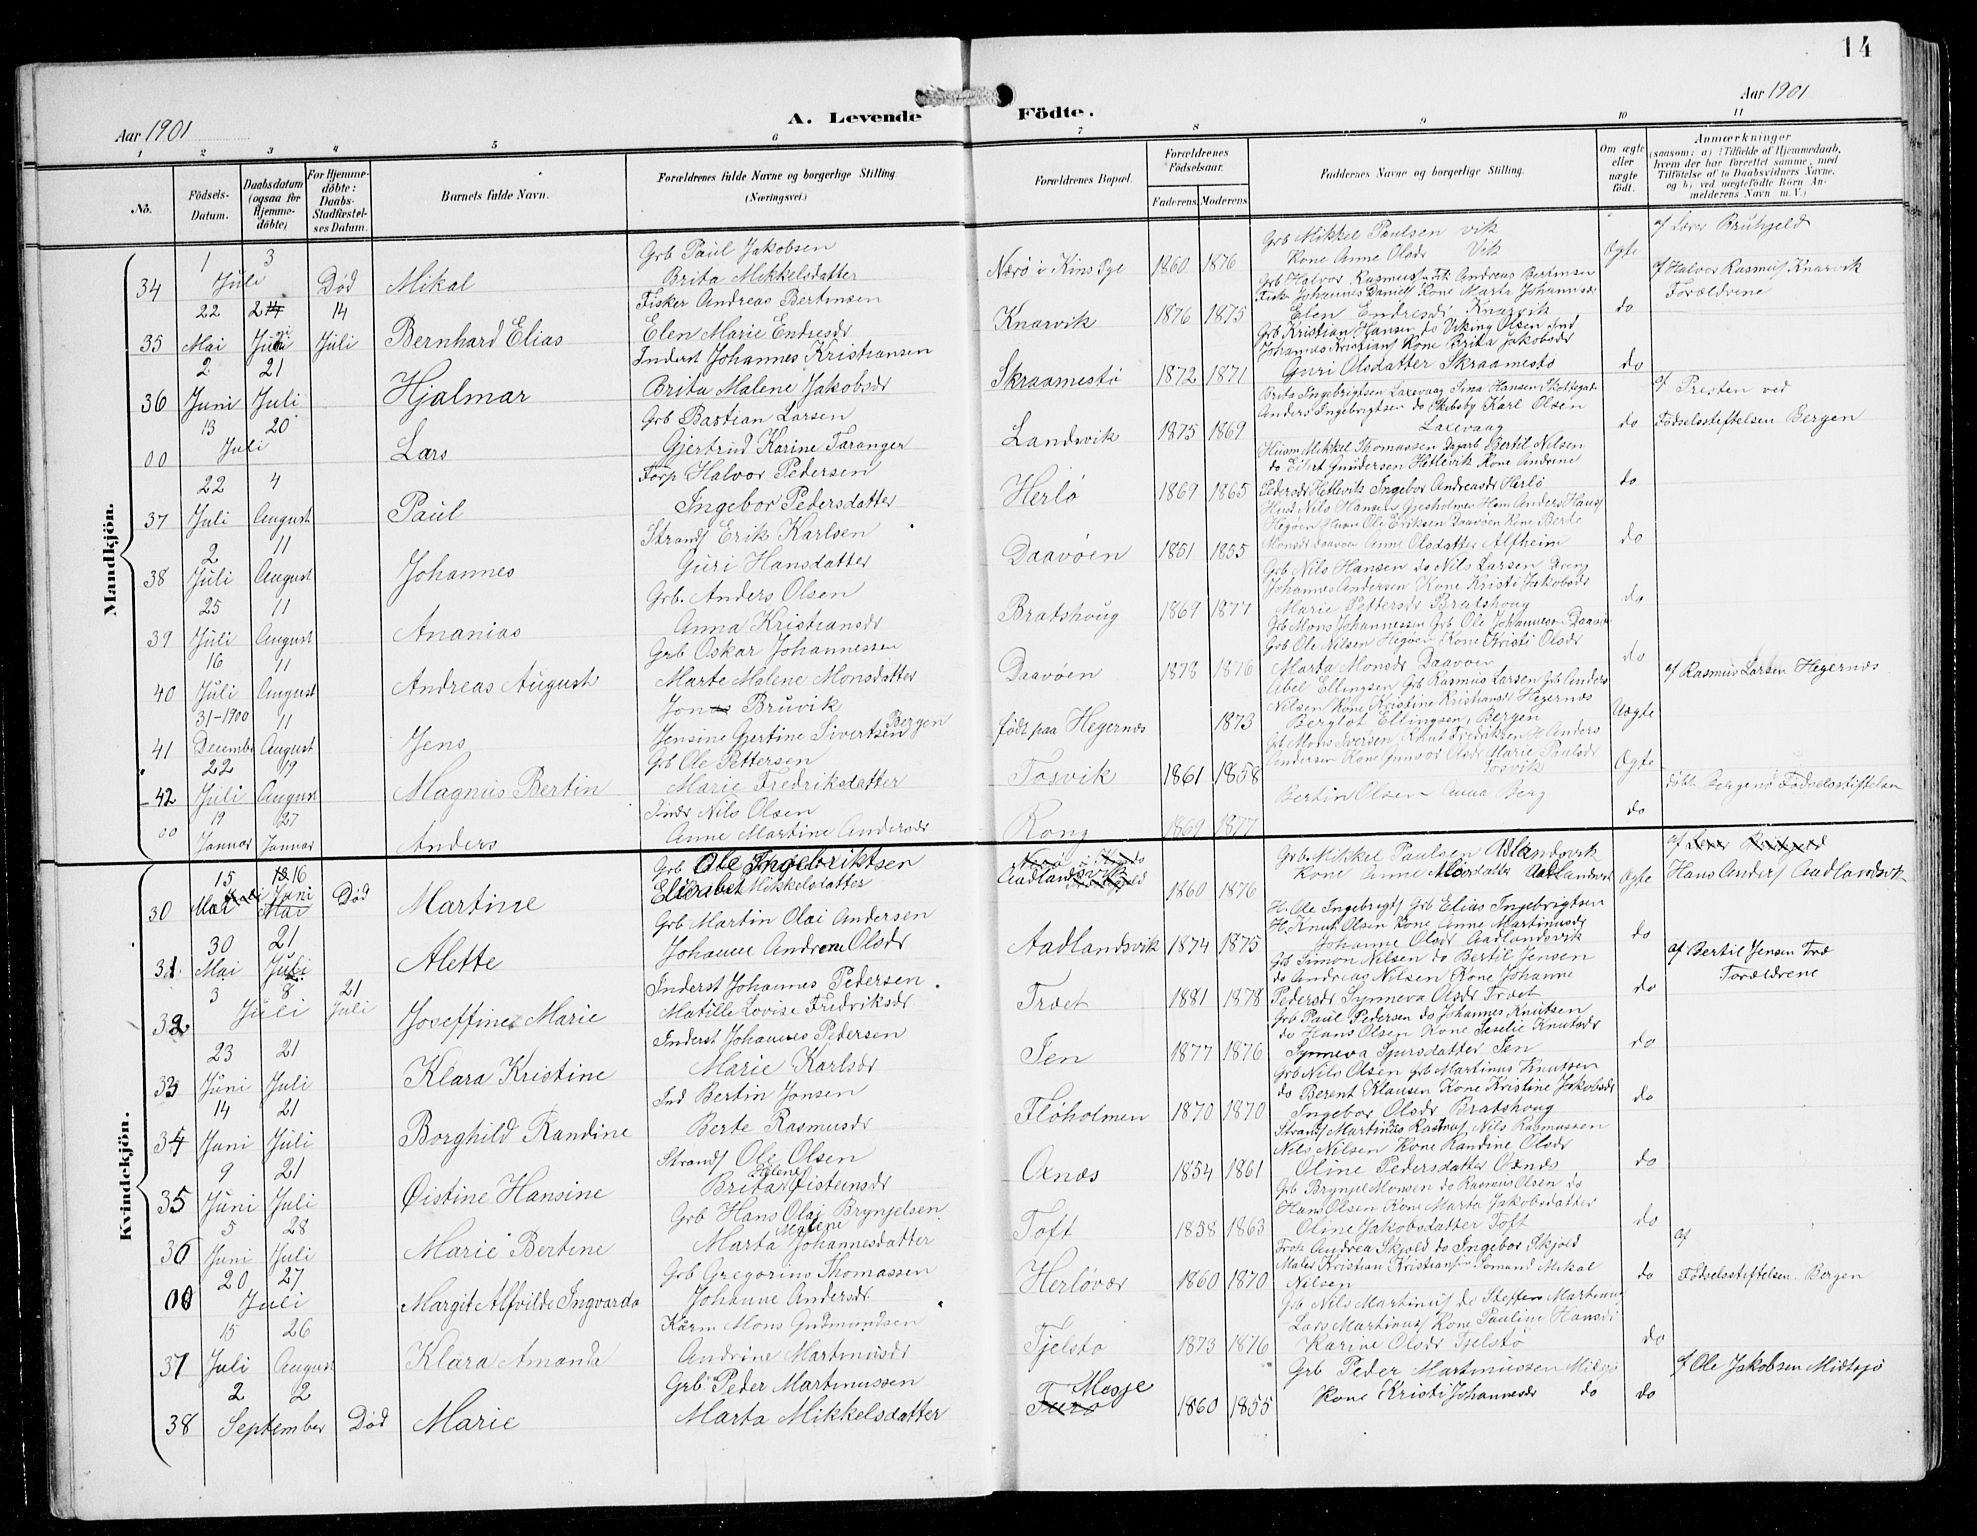 14
Aar 1901
A. Levende Födte.
Aar 1901
1 2 3 4 5 6 7 8 9 10 11
No.
Födsels-Datum.
Daabsdatum (ogsaa for Hjemme-döbte)
For Hjemme-döbte: Daabs-Stadfæstel-ses Datum.
Barnets fulde Navn.
Forældrenes fulde Navne og borgerlige Stilling (Næringsvei.)
Forældrenes Bopæl.
Forældrenes Födselsaar.
Faderens. Moderens.
Faddernes Navne og borgerlige Stilling.
Om ægte eller uægte födt.
Anmærkninger
(saasom: a) i Tilfælde af Hjemmedaab, hvem der har forrettet samme, med Tilföielse af to Daabsvidners Navne, og b) ved uægtefödte Börn An-melderens Navn m. V.)
Mandkjön.
34 1 3 Juli Död Mikal
Grb Paul Jakobsen
Brita Mikkelsdatter
Nærö i Kins Pge 1860 1876
Grb Mikkel Paulsen Vik
Kone Anne Olsdr Vik
Ægte
af Lærer Bruhjeld
35 22 Mai 2 Juni 14 Juli Bernhard Elias
Fisker Andreas Bertinsen
Elen Marie Endresdr
Knarvik 1876 1875
Elen Endresdr Knarvik
do
af Halvor Rasmus Knarvik
Forældrene
36 2 Juni 21 Juli Hjalmar
Inderst Johannes Kristiansen
Brita Malene Jakobsdr
Skraamestö 1872 1871
Grb Kristian Hansen do Viking Olsen Ind
Johannes Kristians Kone Brita Jakobsdr
Guri Olsdatter Skraamestö
do
00 13 20 Juli Lars
Grb Bastian Larsen
Gjertrud Karine Taranger
Landsvik 1875 1869
Brita Ingebrigtsen Laxevaag Sina Hansen
Anders Ingebrigtsen do Karl Olsen
Laxevaag
do
af Presten ved
Fødselsstiftelsen Bergen
37 22 Juli 4 August Paul
Forp Halvor Pedersen
Ingebor Pedersdatter
Herlö 1869 1865
Husm Mikkel Thomassen Dagarb Bertil Nilsen
do Eilert Gundersen Hetlevik Kone Andrine
Pedersdr Hetlevik Ingebor Andreasdr Herlö
do
38 2 Juli 11 August Johannes
Strands Erik Karlsen
Guri Hansdatter
Daavöen 1851 1855
Hust Nils Hansen Gjesholmen Hem Anders Hans
Hegöen Husm Ole Eriksen Daavöen Kone Berte
Monsdr Daavöen Anne Olsdatter Alfheim
do
39 25 Juli 11 August Ananias
Grb. Anders Olsen
Anna Kristiansdr
Bratshoug 1869 1877
Grb Nils Hansen do Nils Larsen Dreng
Johannes Andersen Kone Kristi Jakobsdr
Marie Pettersdr Bratshoug
do
40 16 Juli 11 August Andreas August
Grb Oskar Johannessen
Marte Malene Monsdatter
Daavöen 1878 1876
Grb Mons Johannessen Grb Ole Johannesen Daavö
Grb Ole Nilsen Hegöen Kone Kristi Olsdr
Marta Monsdr Daavöen
do
41 31-1900 December 11 August Jens
Jonas Bruvik
Jensine Gjertine Sivertsen Bergen
født paa Hegernæs 1873
Abel Ellingsen Grb Rasmus Larsen Grb Anders
Nilsen Kone Kristine Kristiansdr Hegernæs
Berglot Ellingsen, Bergen
Uægte
af Rasmus Larsen Hegernæs
42 22 Juli 19 August Magnus Bertin
Grb Ole Pettersen
Marie Fredriksdatter
Tosvik 1861 1858
Grb Mons Iversen Knut Fredriksen H Anders
Andersen Kone Gunvor Olsdr Marie Paulsdr
Tosvik
Ægte
00 19 Januar 27 Januar Anders
Indr Nils Olsen
Anne Martine Andersdr
Rong 1869 1877
Bertin Olsen Anna Berg
do
döbt Bergens Födselsstiftelsen
Kvindekjön.
30 15 Mai 16 Juni Död Martine
Grb Ole Ingebriktsen
Elisabet Mikkelsdatter
Aadlandsvik 1860 1876
Grb. Mikkel Paulsen Adlandsvik
Kone Anne Aadlandsvik
Ægte
Hans Anders Aadlandsvik
31. 30 Mai 21 Juli Alette
Grb Martin Olai Andersen
Johanne Andrea Olsdr
Aadlandsvik 1874 1875
H. Ole Ingebrigts Grb Elias Ingebrigtsen
H. Knut Olsen Kone Anne Martinusdr
Johanne Olsdr Aadlandsvik
do
32 3 8 Juli 21 Juli Joseffine Marie
Inderst Johannes Pedersen
Matille Lovise Fredriksdr
Træt 1881 1878
Grb Simon Nilsen do Bertil Jensen
do Andreas Nilsen Kone Johanne
Pedersdr Synneva Olsdr Træt
do
af Bertil Jensen Træ
Forældrene
33 23 Juni 21 Juli Klara Kristine
Inderst Johannes Pedersen
Marie Karlsdr
Ten 1877 1876
Grb Paul Pedersen do Johannes Knutsen
do Hans Olsen Kone Seselie Knutsdr
Synneva Sjursdatter Ten
do
34 14 Juni 21 Juli Borghild Randine
Ind Bertin Jonsen
Berte Rasmusdr
Flöholmen 1870 1870
Grb Nils Olsen grb Martinus Knutsen
do Berent Klausen Kone Kristine Jakobsdr
Ingebor Olsdr Bratshoug
do
35 9 Juni 21 Juli Øistine Hansine
Strands Ole Olsen
Brita Helene Øisteinsdr
Oxnæs 1854 1861
Strands Martinus Rasmus Nils Rasmussen
Nils Nilsen Kone Randine Olsdr
Oline Pedersdatter Oxnæs
do
36 5 Juni 28 Juli Marie Bertine
Grb Hans Olai Brynjelsen
Marta Malene Johannesdatter
Toft 1858 1863
Grb Brynjel Monsen do Rasmus Olsen do
Hans Olsen Kone Marta Jakobsdatter
Oline Jakobsdatter Toft
do
00 20 27 Juli Margit Alfvilde Ingvarda
Grb Gregorius Thomassen
Johanne Andersdr
Herlövær 1860 1870
Frøk Andrea Skjold do Ingebor Skjold
Maler Kristian Kristians Sömand Mikal
Nilsen
do
af
Födselsstiftelsen. Bergen
37 15 Juli 26 August Klara Amanda
Kårm Mons Gudmundsen
Andrine Martinusdr
Tjelstö 1873 1876
Grb Nils Martinus do Steffen Martinus
Lars Martinus Kone Pauline Hansdr
Karine Olsdr Tjelstö
do
38 2 2 September Död Marie
Grb Peder Martinussen
Marta Mikkelsdatter
Mosje 1860 1855
Grb Peder Martinussen
Kone Kristi Johannesdr do
do
af Ole Jakobsen Midtsjö